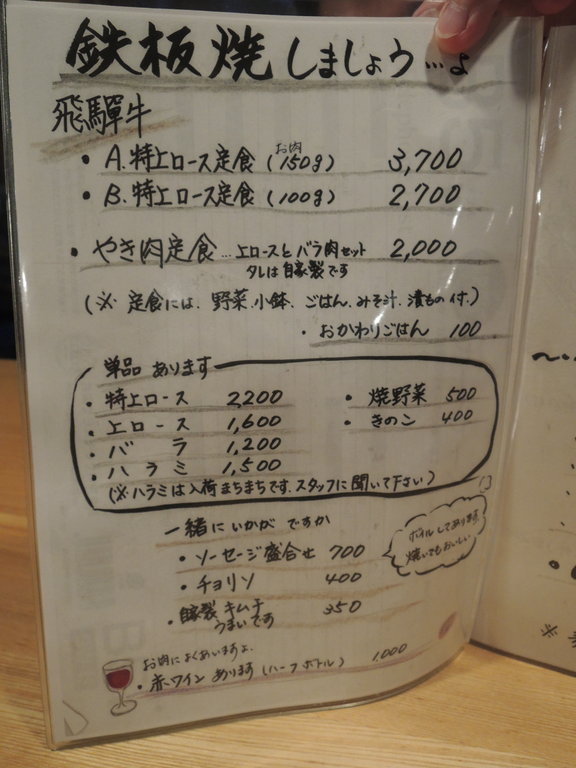 鉄板焼しましょう…よ
飛騨牛
・A.特上ロース定食(お肉150g) 3,700
・B.特上ロース定食(100g) 2,700
・やき肉定食…上ロースとバラ肉セット 2,000
タレは自家製です
(※定食には、野菜.小鉢、ごはん、みそ汁.漬もの付.)
・おかわりごはん 100
単品あります
・特上ロース 2,200
・上ロース 1,600
・バラ 1,200
・ハラミ 1,500
・焼野菜 500
・きのこ 400
(※ハラミは入荷まちまちです.スタッフに聞いて下さい)
一緒にいかがですか
・ソーセージ盛合せ 700
ボイルしてあります.
焼いてもおいしい
・チョリソ 400
・自家製キムチ 350
うまいです
お肉によくあいますよ.
・赤ワインあります(ハーフボトル) 1,000